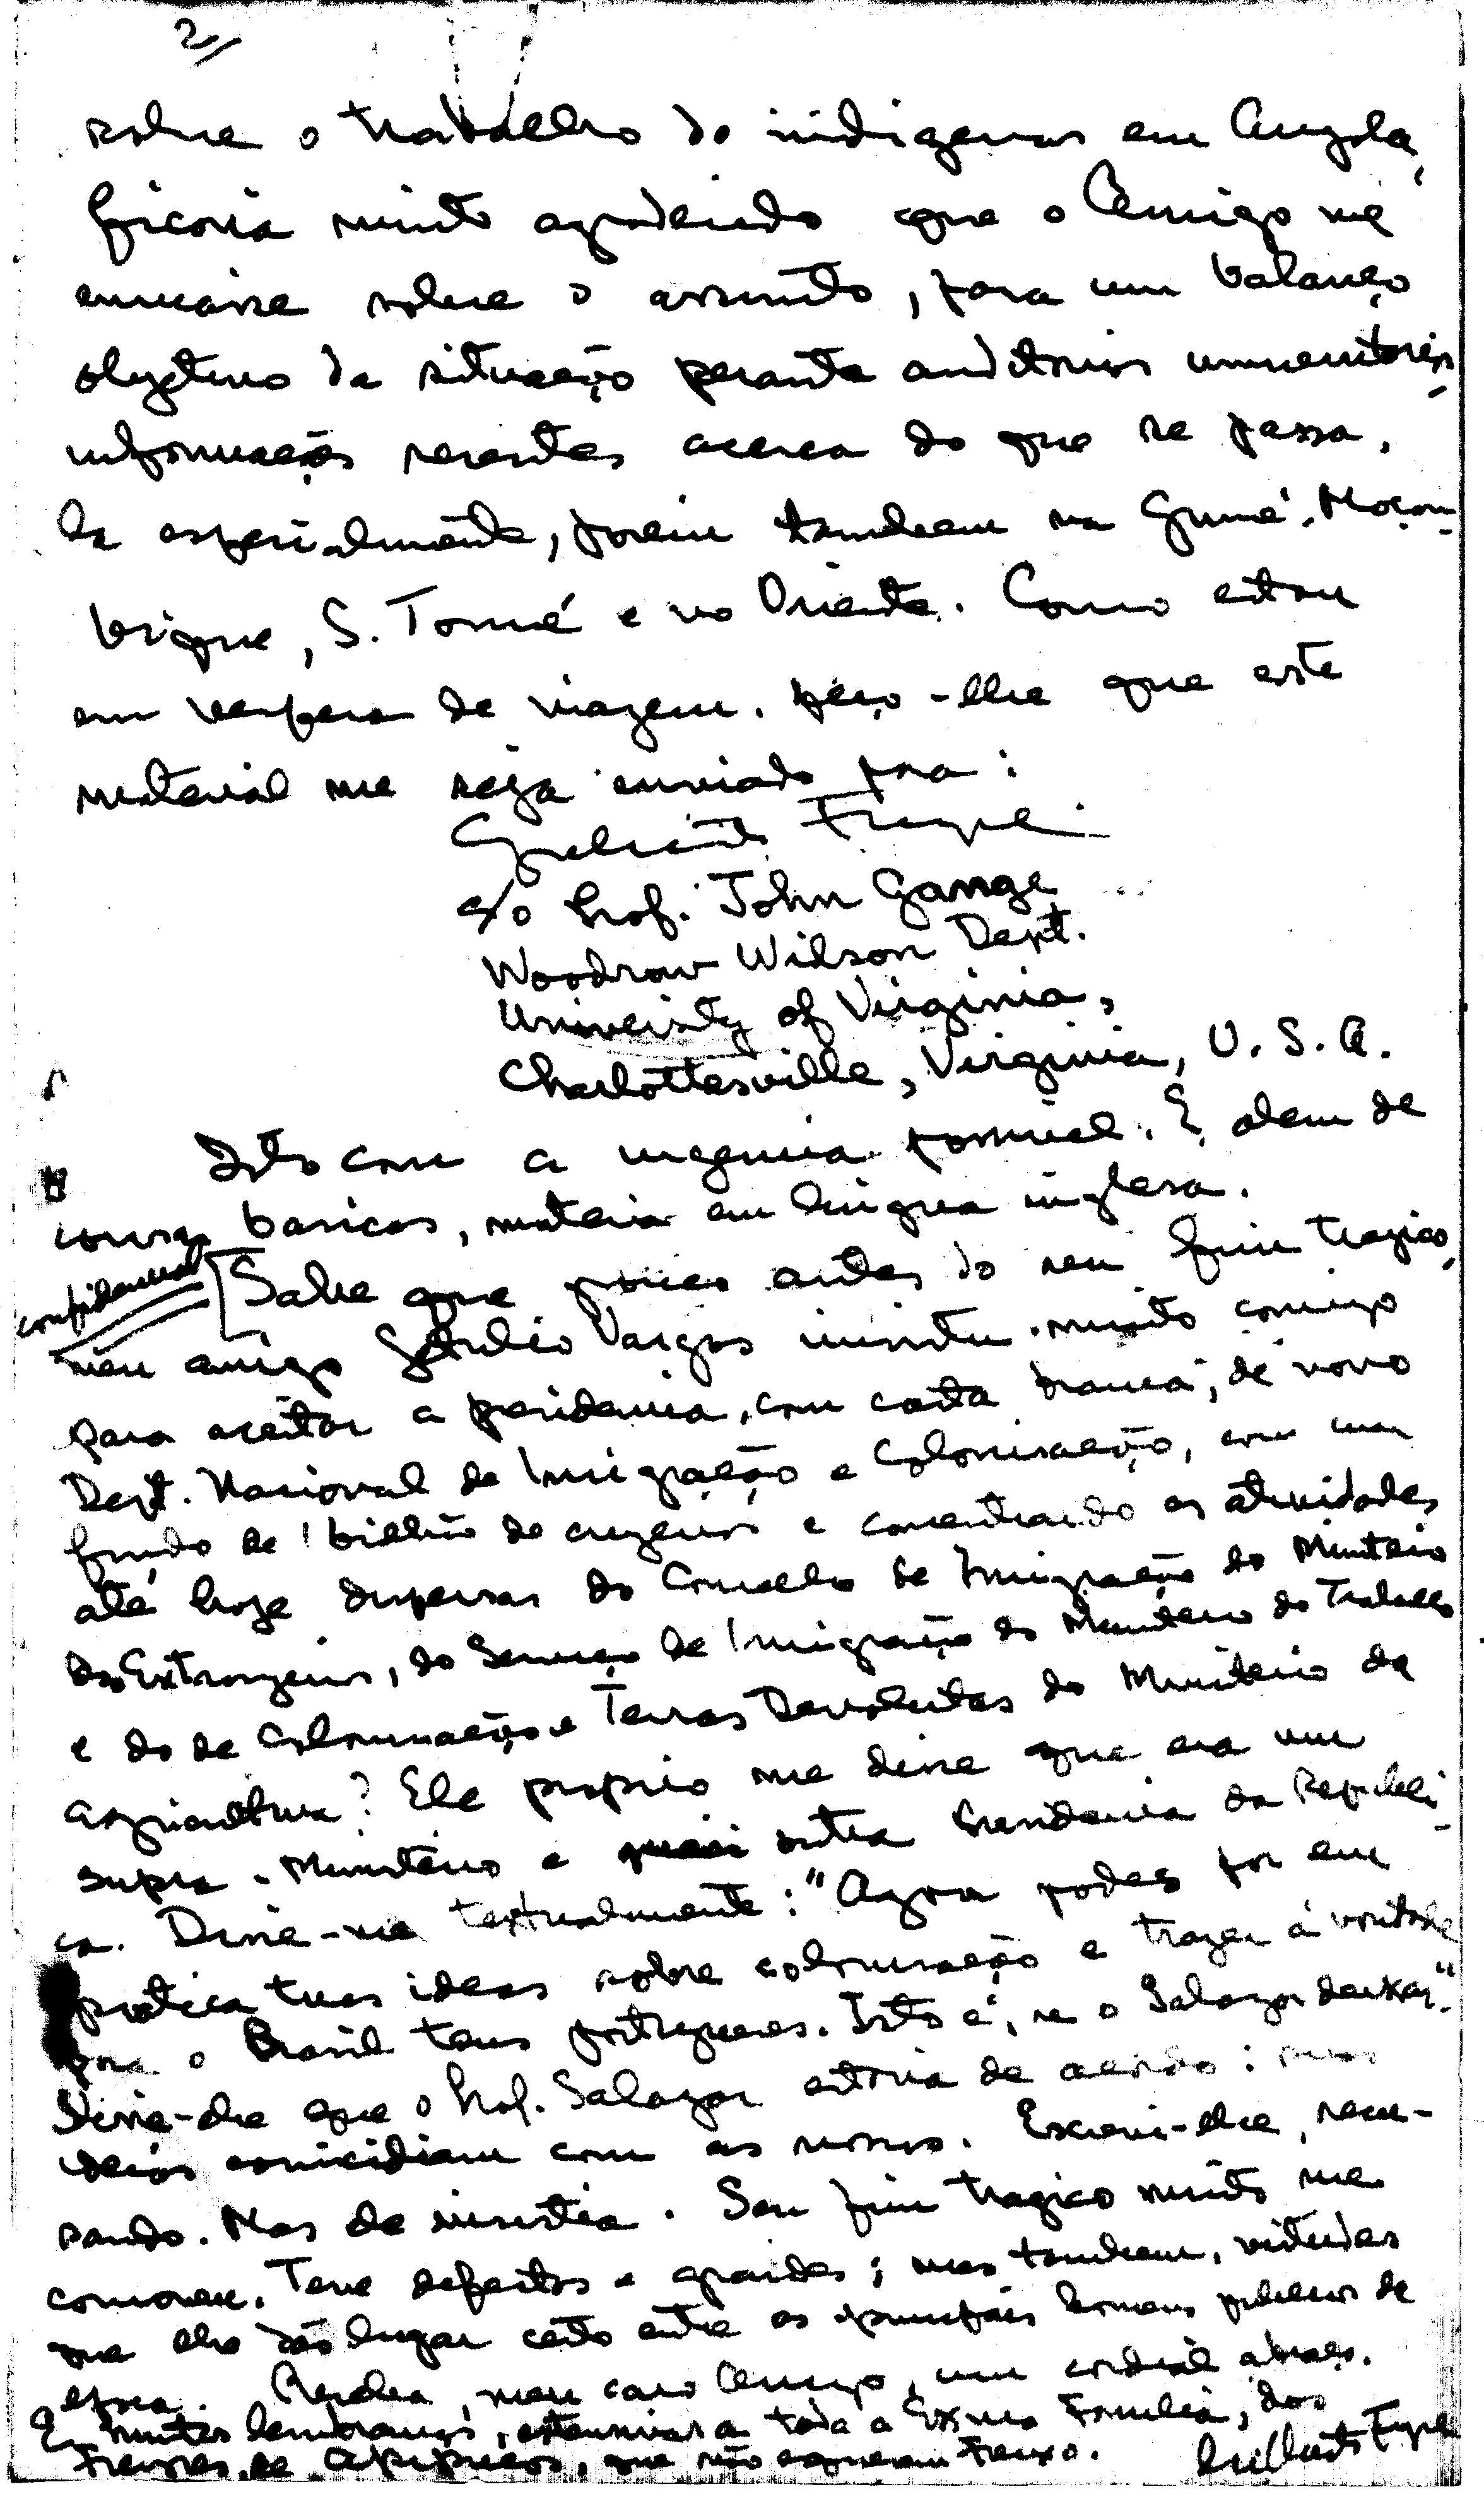 2/
sobre o trabalho do indigenas em Angola,
ficaria muito agradecido que o Amigo me
enviasse sobre o assunto, para um balanço
objetivo da situação perante auditorios universitarios,
informações recentes acerca do que se passa,
la especialmente, porem tambem na Guiné, Moçam-
bique, S. Tomé e no Oriente. Como estou
em vespera de viagem, peço-lhe que este
material me seja enviado para:
Gilberto Freyre
c/o Prof. John Gange
Woodrow Wilson Dept.
University of Virginia,
Charlottesville, Virginia, U.S.A.
Isto com a urgencia possivel. E, alem de
coisas basicas, materia em lingua inglesa.
confidencial
[Sabe que pouco antes do seu fim tragico,
meu amigo Getulio Vargas insistiu muito comigo
para aceitar a presidencia, com carta branca, de novo
Dept. Nacional de Imigração e Colonisação, com um
fundo de 1 bilhão de cruzeiros e concentrando as atividades
até hoje dispersas do Conselho de Imigração do Ministerio
do Extrangeiro, do Serviço de Imigração do Ministerio do Trabalho
e do de Colonisação e Terras Devolutas do Ministerio da
Agricultura? Ele proprio me disse que era um
supra-Ministerio e quasi outra Presidencia da Republi-
ca. Disse-me textualmente: "Agora podes por em
pratica tuas ideas sobre colonisação e trazer á vontade
para o Brasil teus portugueses. Isto é, se o Salazar deixar."
Disse-lhe que o Prof. Salazar estaria de acordo: suas
ideias coincidiam com as nossas. Escrevi-lhe, recu-
sando. Mas ele insistia. Seu fim tragico muito me
comoveu. Teve defeitos e grandes; mas tambem, virtudes
que lhe dão lugar certo entre os principais homens publicos de
epoca. Receba, meu caro Amigo, um cordial abraço.
E muitas lembranças, extensivas a toda a Exma Familia, dos
Freyres, de Apipucos, que não esquecem Freixo. Gilberto Freyre